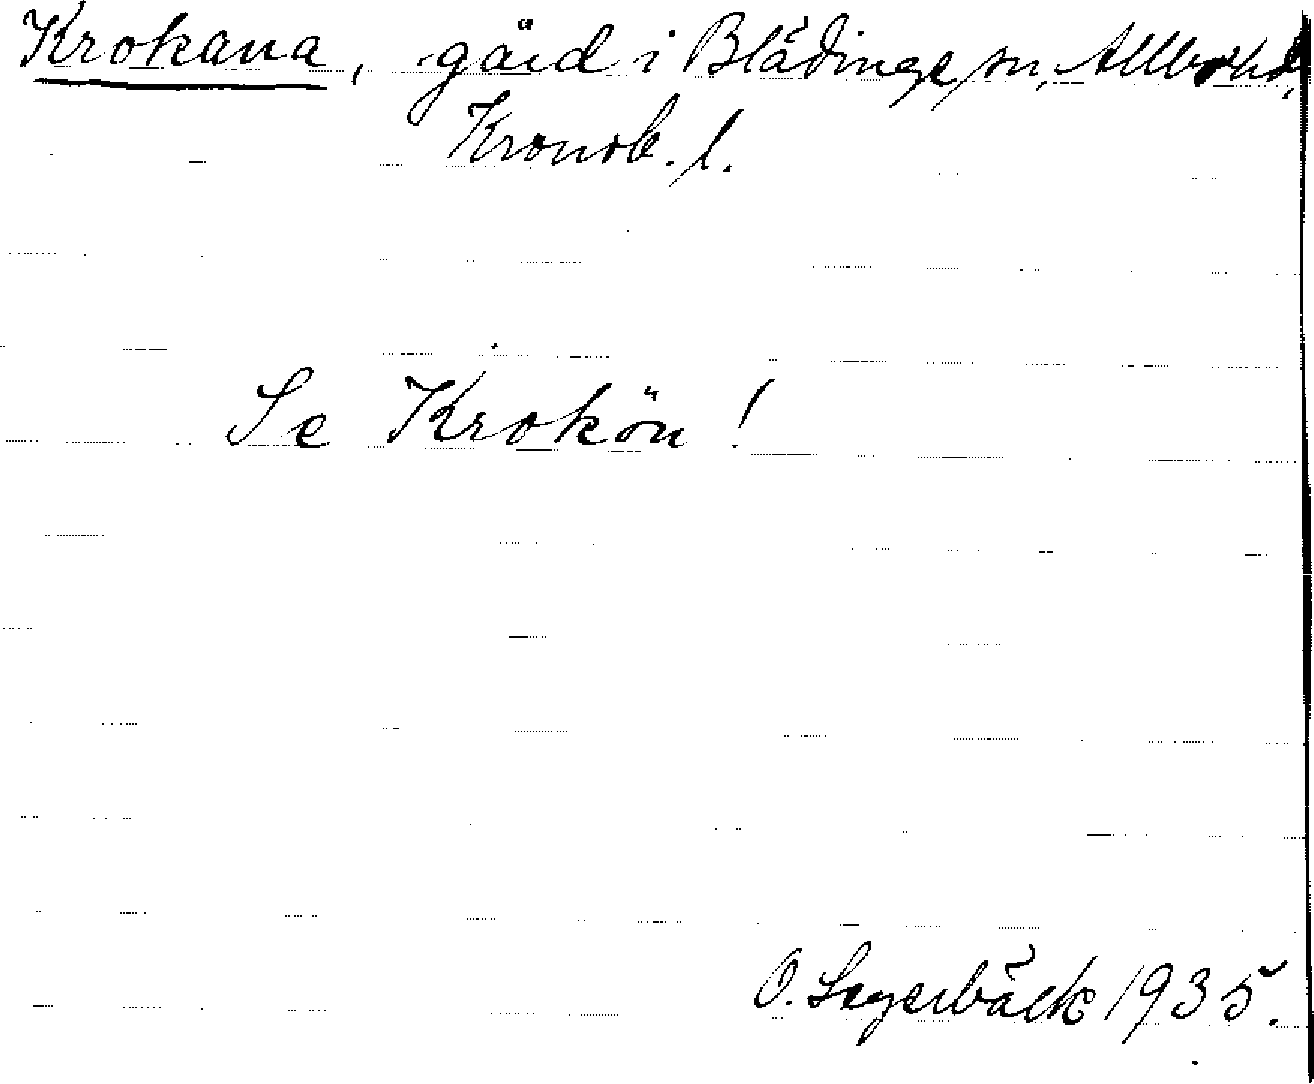 Krokana, gård i Blädinge sn, Allbo hd,
Kronob. l.
Se Krokön!
O. Lagerbäck 1935.